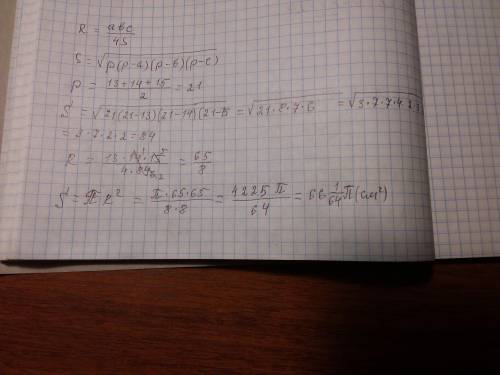 R = abc / 4S
S = √p(p-a)(p-b)(p-c)
p = (13+14+15) / 2 = 21
S = √21(21-13)(21-14)(21-15 = √21·8·7·6 = √3·7·7·4·2·3
= 3·7·2·2 = 84
R = 13·14·15 / 4·84 = 65 / 8
S = πR² = π·65·65 / 8·8 = 4225π / 64 = 66 1/64 π (см²)